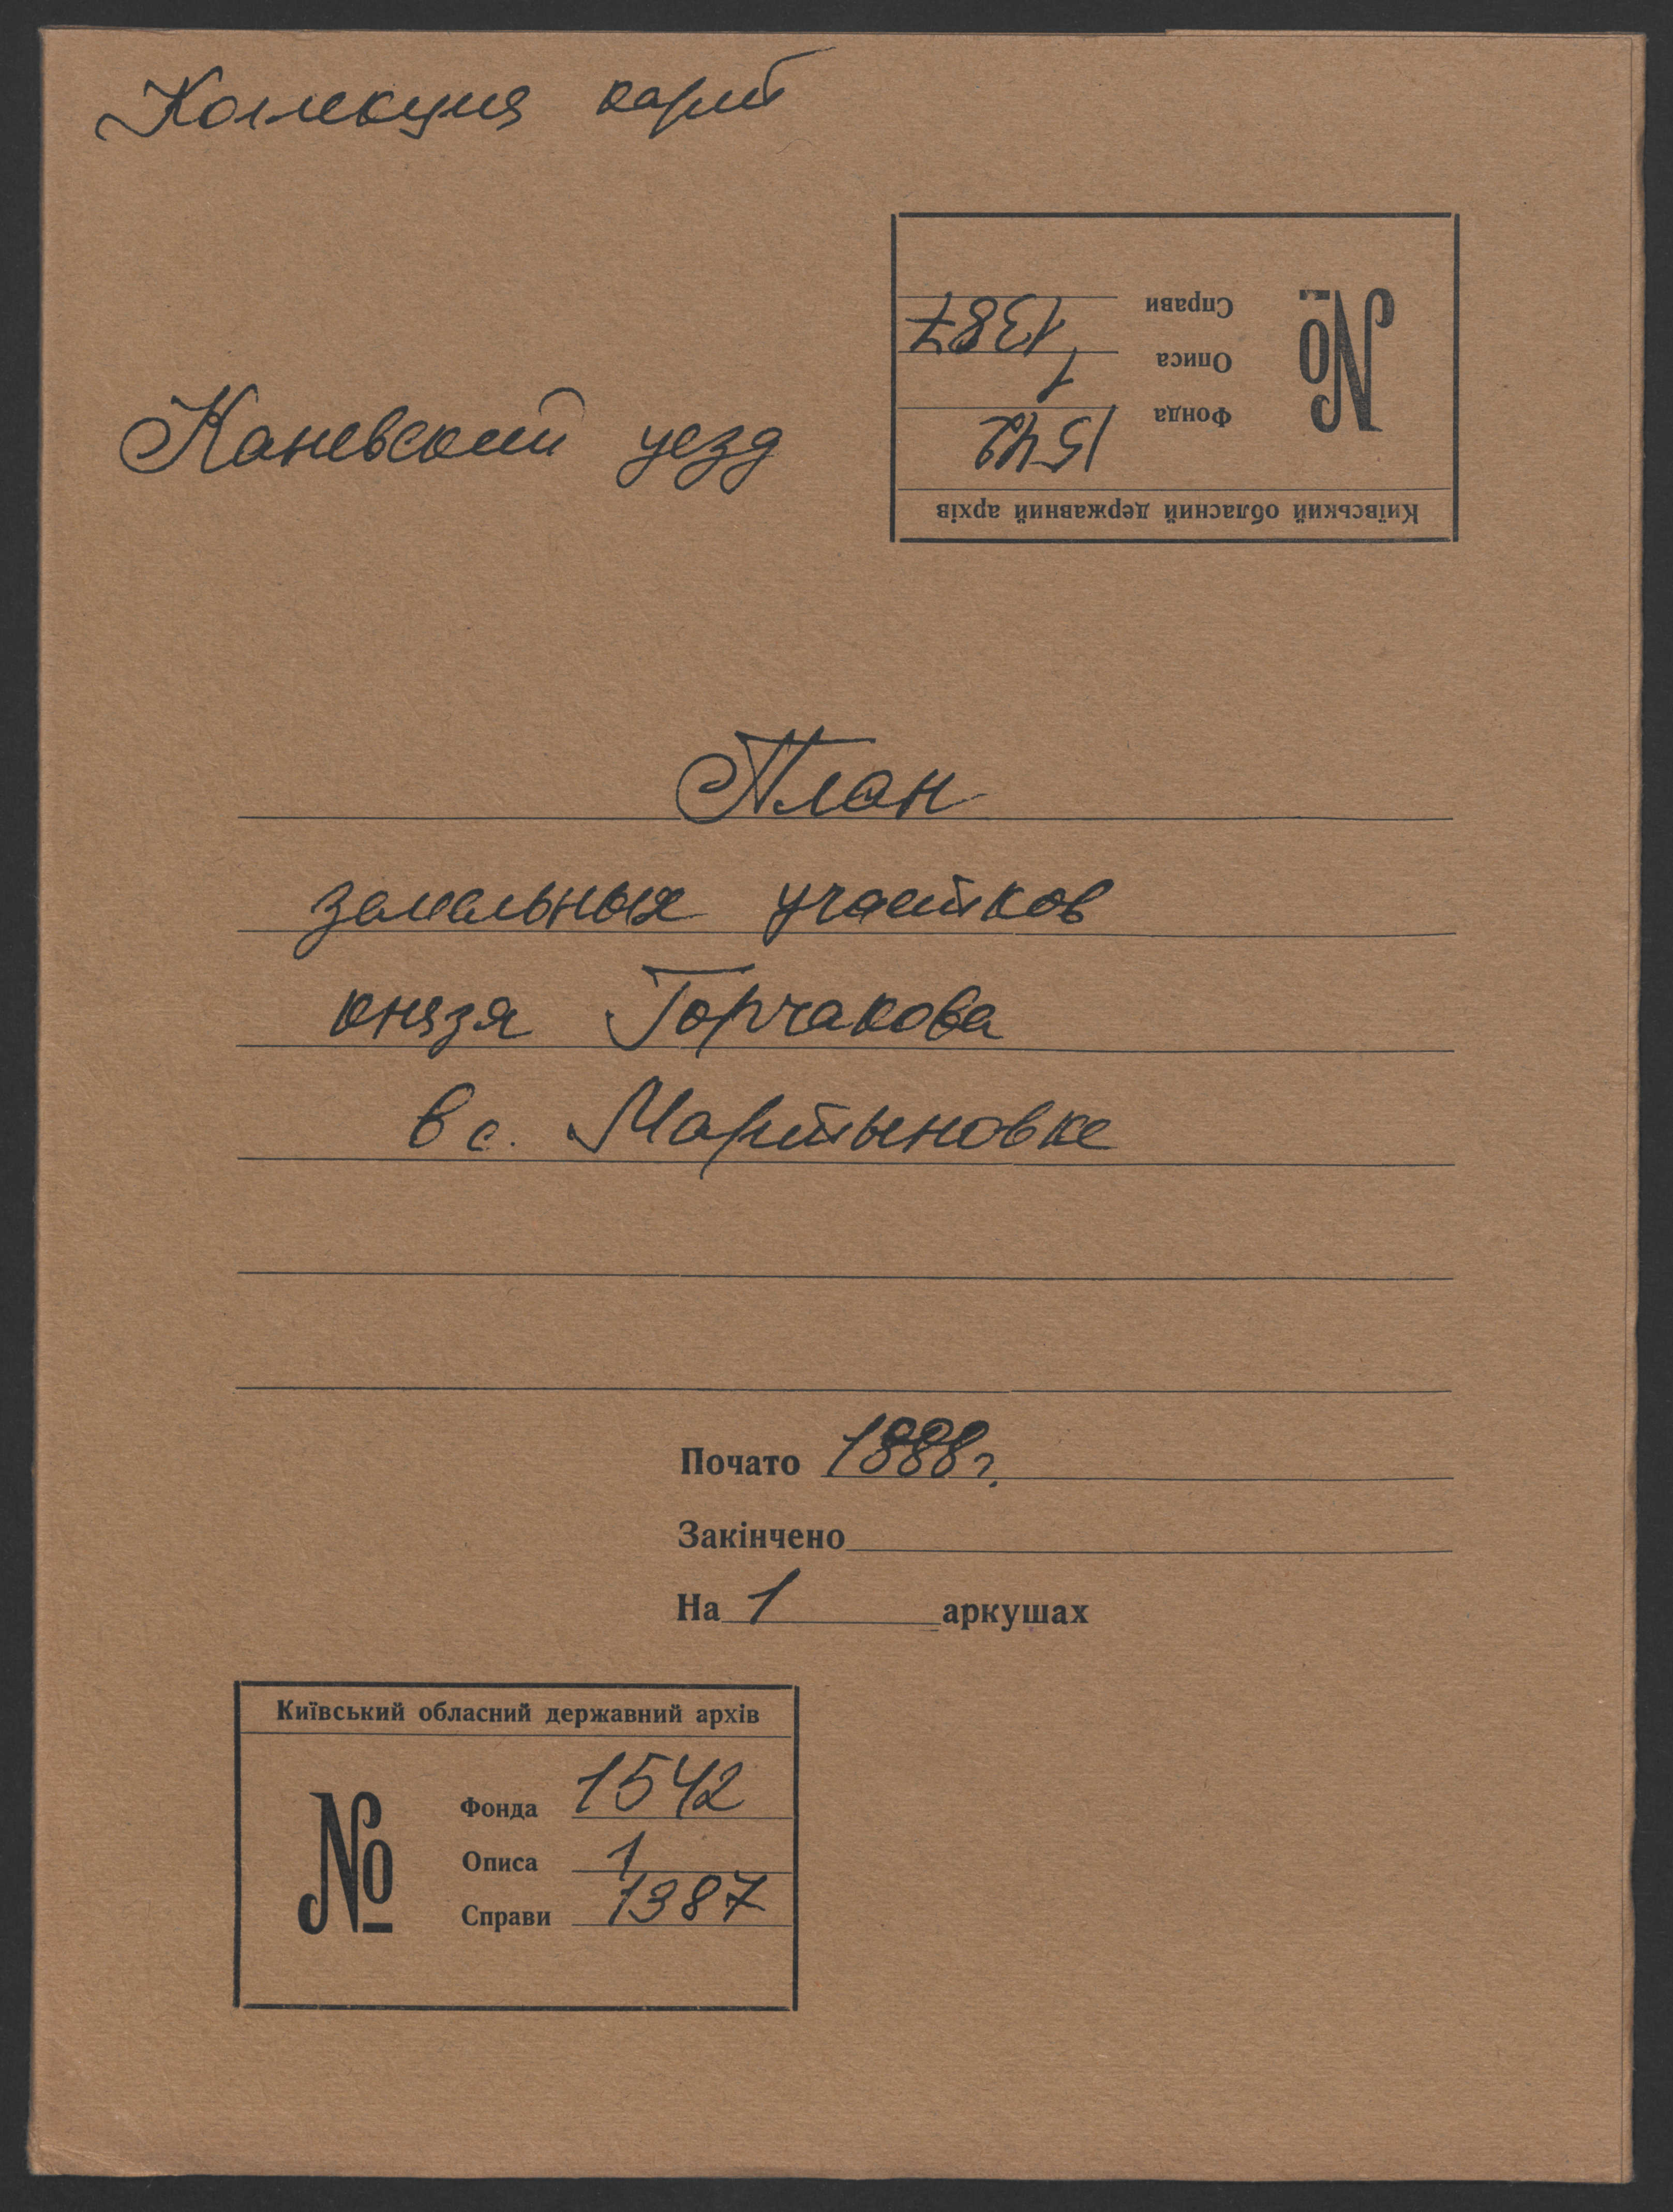 Коллекция карт
Каневский уезд
Київський обласний державний архів
№
Фонда 1542
Описа 1
Справи 1387
План
земельных участков
князя Горчакова
в с. Мартыновке
Почато 1888 г.
Закінчено
На 1 аркушах
Київський обласний державний архів
№
Фонда 1542
Описа 1
Справи 1387